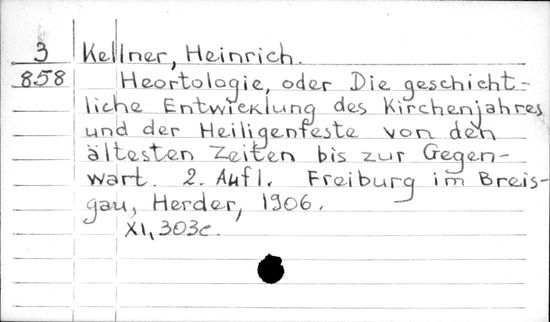 3 Kellner, Heinrich.
858 Heortologie, oder Die geschicht-
liche Entwicklung des Kirchenjahres
und der Heiligenfeste von den
ältesten Zeiten bis zur Gegen-
wart. 2. Aufl. Freiburg im Breis-
gau, Herder, 1906.
XI, 303c.